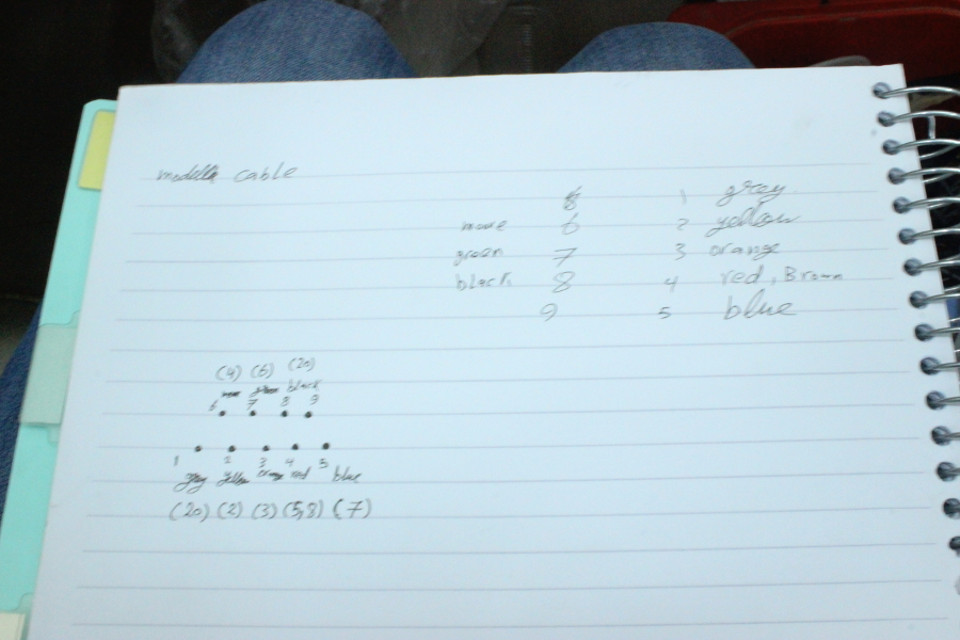 cable
1 gray
6 2 yellow
green 7 3 orange
black 8 4 red, Brown
9 5 blue
(4) (6) (20)
black
6 7 8 9
1 2 3 4 5
gray yellow orange red blue
(20) (2) (3) (5,8) (7)